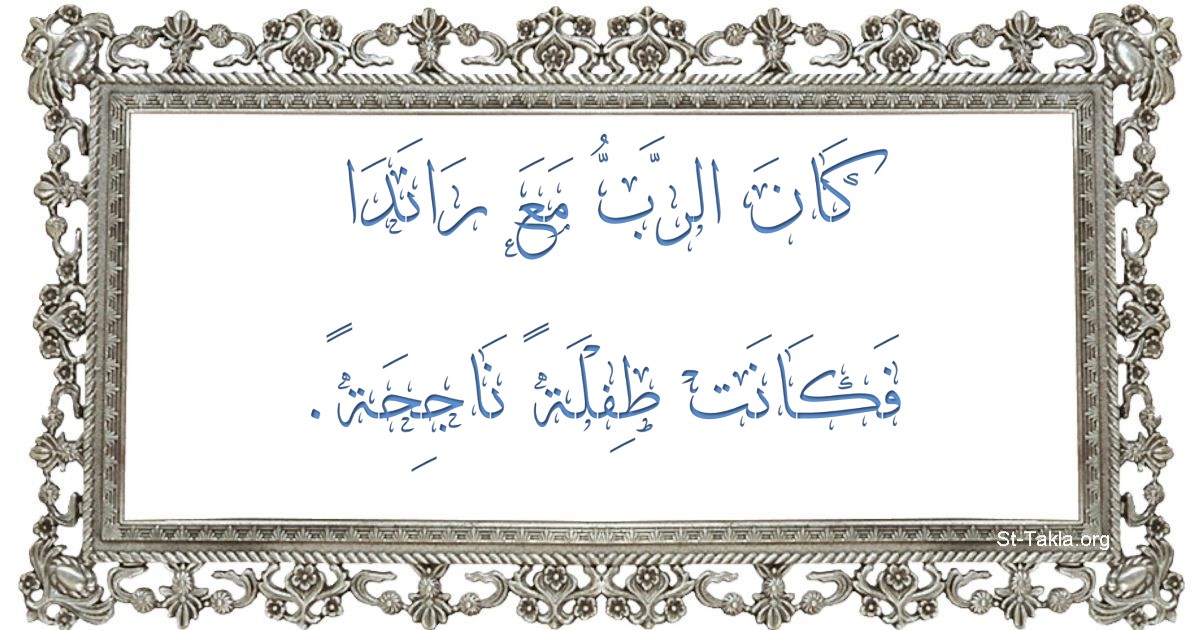 كَانَ الرَّبُّ مَعَ رَانَدَا
فَكَانَت طِفْلَةً نَاجِحَةً.
St-Takla.org